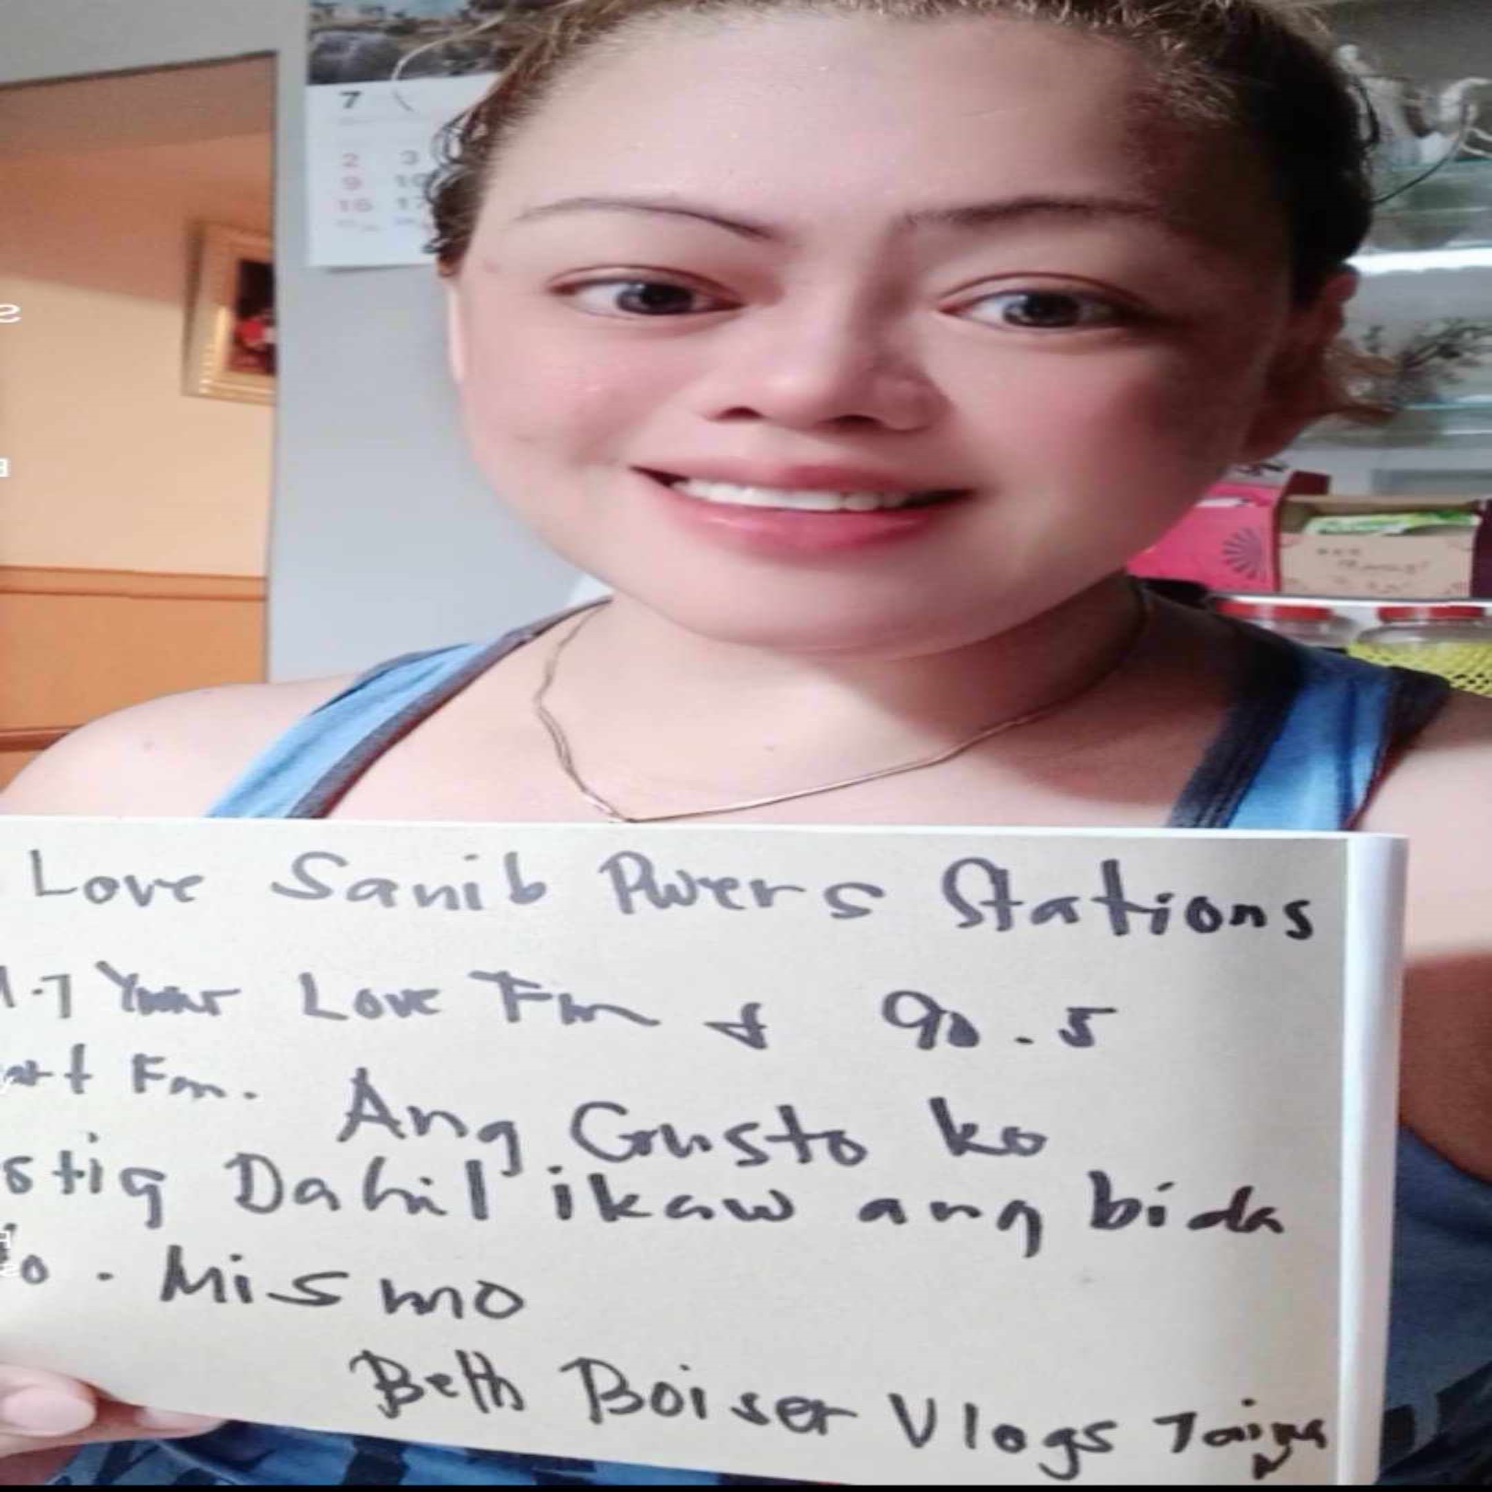 7
2 3
9 10
16 17
Love Sanib Pwers Stations
1.7 Your Love Fm & 90.5
Fm. Ang Gusto ko
stig Dahil ikaw ang bida
o. Mismo
Beth Boiser Vlogs